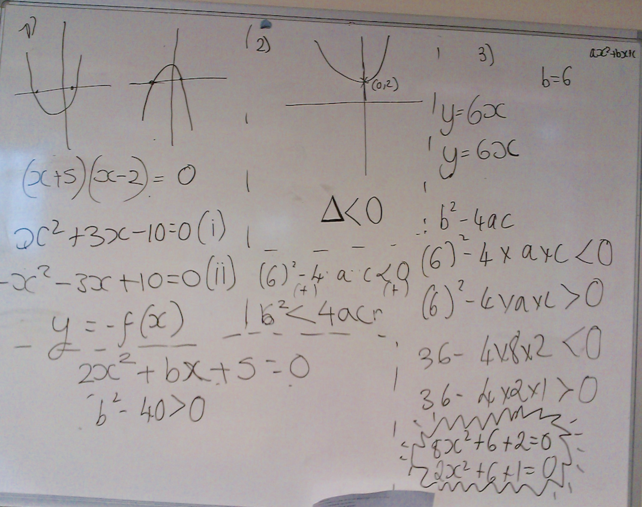 1)
(x+5)(x-2) = 0
x²+3x-10=0 (i)
-x²-3x+10=0 (ii)
y = -f(x)
2x²+bx+5=0
b²-40>0
2)
(0,2)
Δ<0
(6)²-4·a·c<0
(+) (+)
b²<4ac
3)
ax²+bx+c
b=6
y=6x
y=6x
b²-4ac
(6)²-4×a×c<0
(6)²-4×a×c>0
36-4×8×2<0
36-4×2×1>0
8x²+6+2=0
2x²+6+1=0